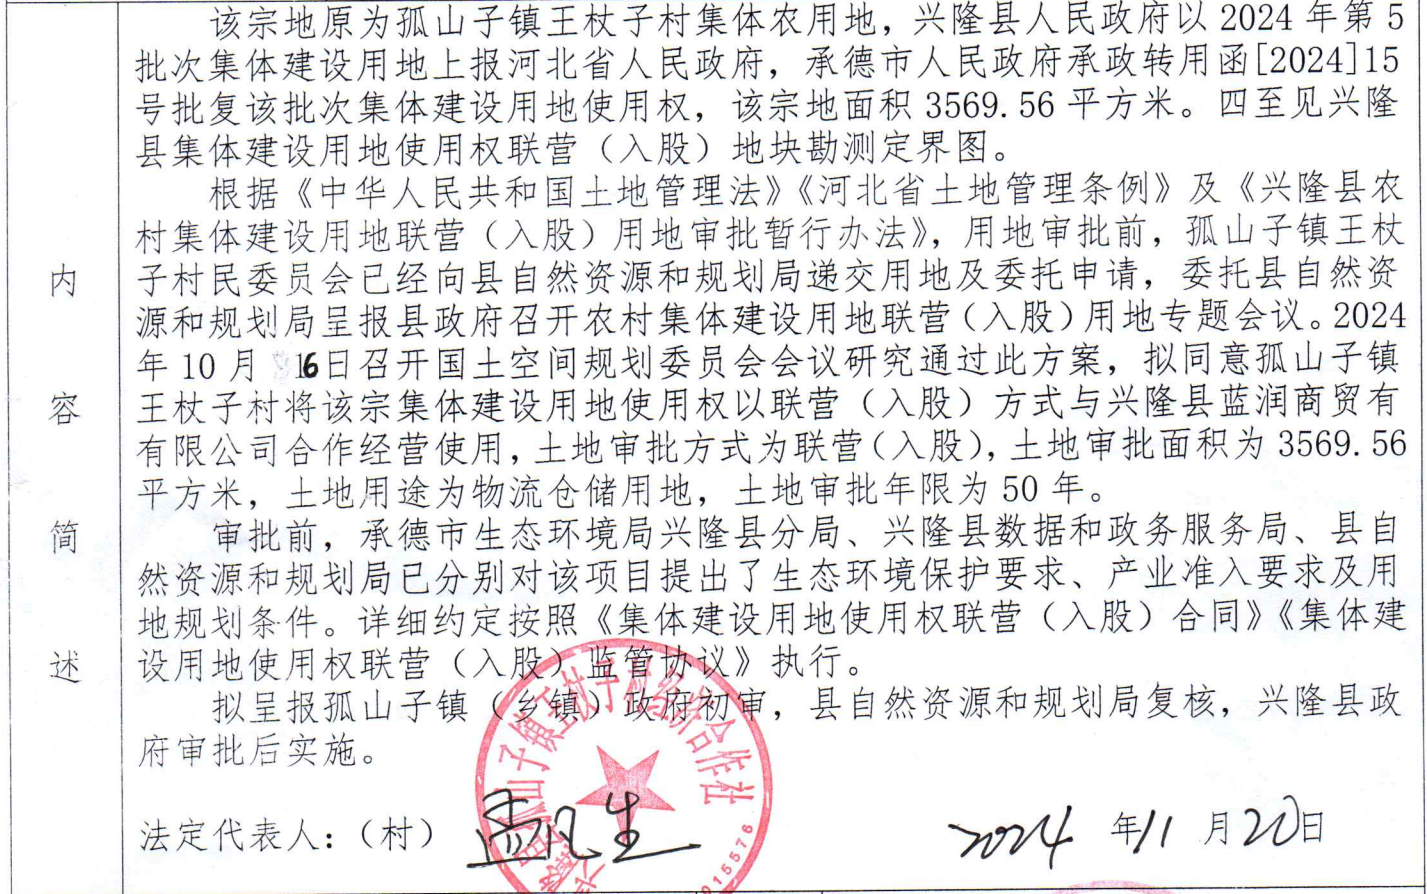 该宗地原为孤山子镇王杖子村集体农用地，兴隆县人民政府以 2024 年第 5
批次集体建设用地上报河北省人民政府，承德市人民政府承政转用函[2024]15
号批复该批次集体建设用地使用权，该宗地面积 3569.56 平方米。四至见兴隆
县集体建设用地使用权联营（入股）地块勘测定界图。
根据《中华人民共和国土地管理法》《河北省土地管理条例》及《兴隆县农
村集体建设用地联营（入股）用地审批暂行办法》，用地审批前，孤山子镇王杖
子村民委员会已经向县自然资源和规划局递交用地及委托申请，委托县自然资
源和规划局呈报县政府召开农村集体建设用地联营（入股）用地专题会议。2024
年 10 月 16日召开国土空间规划委员会会议研究通过此方案，拟同意孤山子镇
王杖子村将该宗集体建设用地使用权以联营（入股）方式与兴隆县蓝润商贸有
有限公司合作经营使用，土地审批方式为联营（入股），土地审批面积为 3569.56
平方米，土地用途为物流仓储用地，土地审批年限为 50 年。
审批前，承德市生态环境局兴隆县分局、兴隆县数据和政务服务局、县自
然资源和规划局已分别对该项目提出了生态环境保护要求、产业准入要求及用
地规划条件。详细约定按照《集体建设用地使用权联营（入股）合同》《集体建
设用地使用权联营（入股）监管协议》执行。
拟呈报孤山子镇（乡镇）政府初审，县自然资源和规划局复核，兴隆县政
府审批后实施。
内容简述
法定代表人：（村） 孟凡生 2024 年 11 月 20日
孤山子镇王杖子村经济合作社
915576